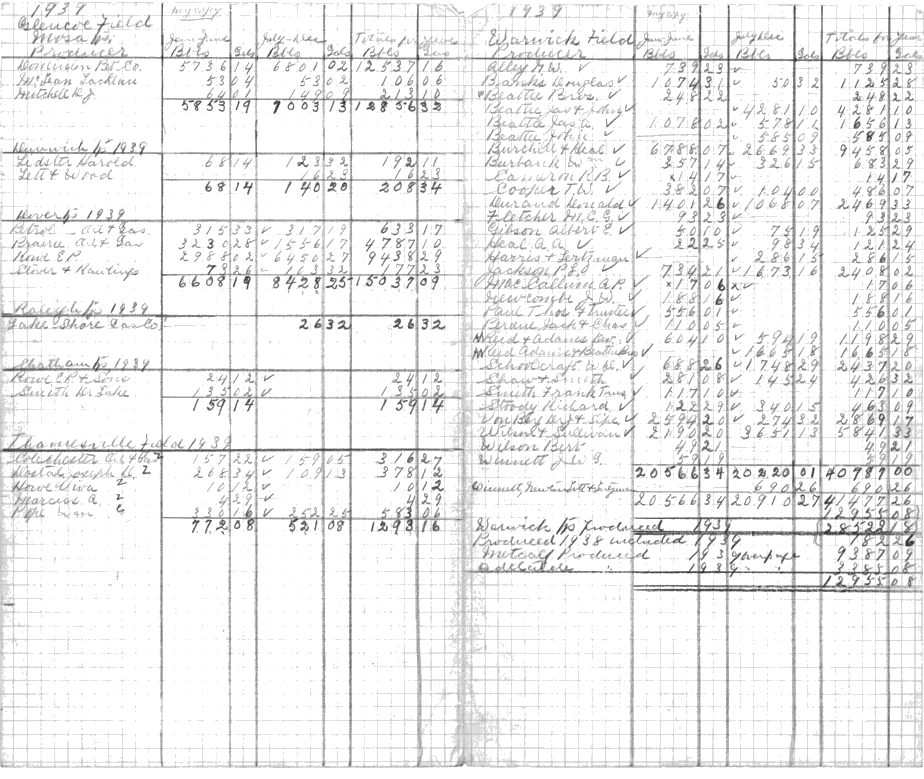 1939
my copy
Glencoe Field
Mosa Tp.
Jan-June July-Dec Totals for year
Producer Bbls Gals Bbls Gals Bbls Gals
Dominion Pet. Co. 5736 14 6801 02 12537 16
McLean Lachlan 53 04 53 02 106 06
Mitchell R J 64 01 149 09 213 10
5853 19 7003 13 12856 32
Dunwich Tp 1939
Ledster Harold 68 14 123 32 192 11
Lett & Wood 16 23 16 23
68 14 140 20 208 34
Dover Tp 1939
Petrol Oil & Gas. 315 33 317 19 633 17
Prairie Oil & Gas 3230 28 1556 17 4787 10
Rowe E.P. 2988 02 6450 27 9438 29
Stover & Rawlings 73 26 103 32 177 23
6608 19 8428 25 15037 09
Raleigh Tp 1939
Lake Shore Gas Co. 26 32 26 32
Chatham Tp 1939
Rowe E.P. & Sons 24 12 24 12
Smith Dr. Luke 135 02 135 02
159 14 159 14
Thamesville Field 1939
Colchester Oil & Gas 2 157 22 159 05 316 27
268 34 109 13 378 12
10 12 10 12
Marcias A 2 4 29 4 29
330 16 252 25 583 06
772 08 521 08 1293 16
1939
my copy
Warwick Field Jan-June July-Dec Totals for Year
Producer Bbls Gals Bbls Gals Bbls Gals
Alley N.W. 739 23 739 23
Banks Douglas 1074 31 50 32 1125 28
Beattie Bros. 248 22 248 22
Beattie Jas & John 428 110 428 110
Beattie Jas A. 1078 02 578 11 1656 13
Beattie John 585 09 585 09
Burchill & Heal 6788 07 2669 33 9458 05
Burbank Wm 357 14 326 15 683 29
Cameron R.B. 14 17 14 17
Cooper T.W. 382 07 104 00 486 07
Durand Donald 1401 26 1068 07 2469 33
Fletcher M.C.G. 93 23 93 23
Gibson Albert E. 50 10 75 19 125 29
Heal A.A. 22 25 98 34 121 24
Harris & Fertzman 286 15 286 15
Jackson P.E. 734 21 1673 16 2408 02
MacCallum A.P. 17 06 17 06
Newcombe J.W. 188 16 188 16
Paul Thos G Trustee 556 01 556 01
Perdue Jack & Chas 110 05 110 05
Reid & Adams Dev. 604 10 594 19 1198 29
Reid Adams & Beattie Bros 166 18 166 18
Schoolcraft W.H. 688 26 1748 29 2437 20
Shaw & Smith 281 08 145 24 426 32
Smith Frank 117 10 117 10
Stoody Richard 122 29 340 15 463 09
2594 20 274 32 2869 17
Wilson & Sullivan 2190 20 3651 13 5841 33
Wilson Bert 49 21 49 21
Winnett J.W.G. 59 19 59 19
20566 34 20220 01 40787 00
690 26 690 26
20566 34 20910 27 41477 26
12955 08
Warwick Tp Produced 1939 28522 18
Produced 1938 included 1939 182 26
Metcalf Produced 1939 9387 09
Adelaide " 1939 " " 3385 08
12955 08